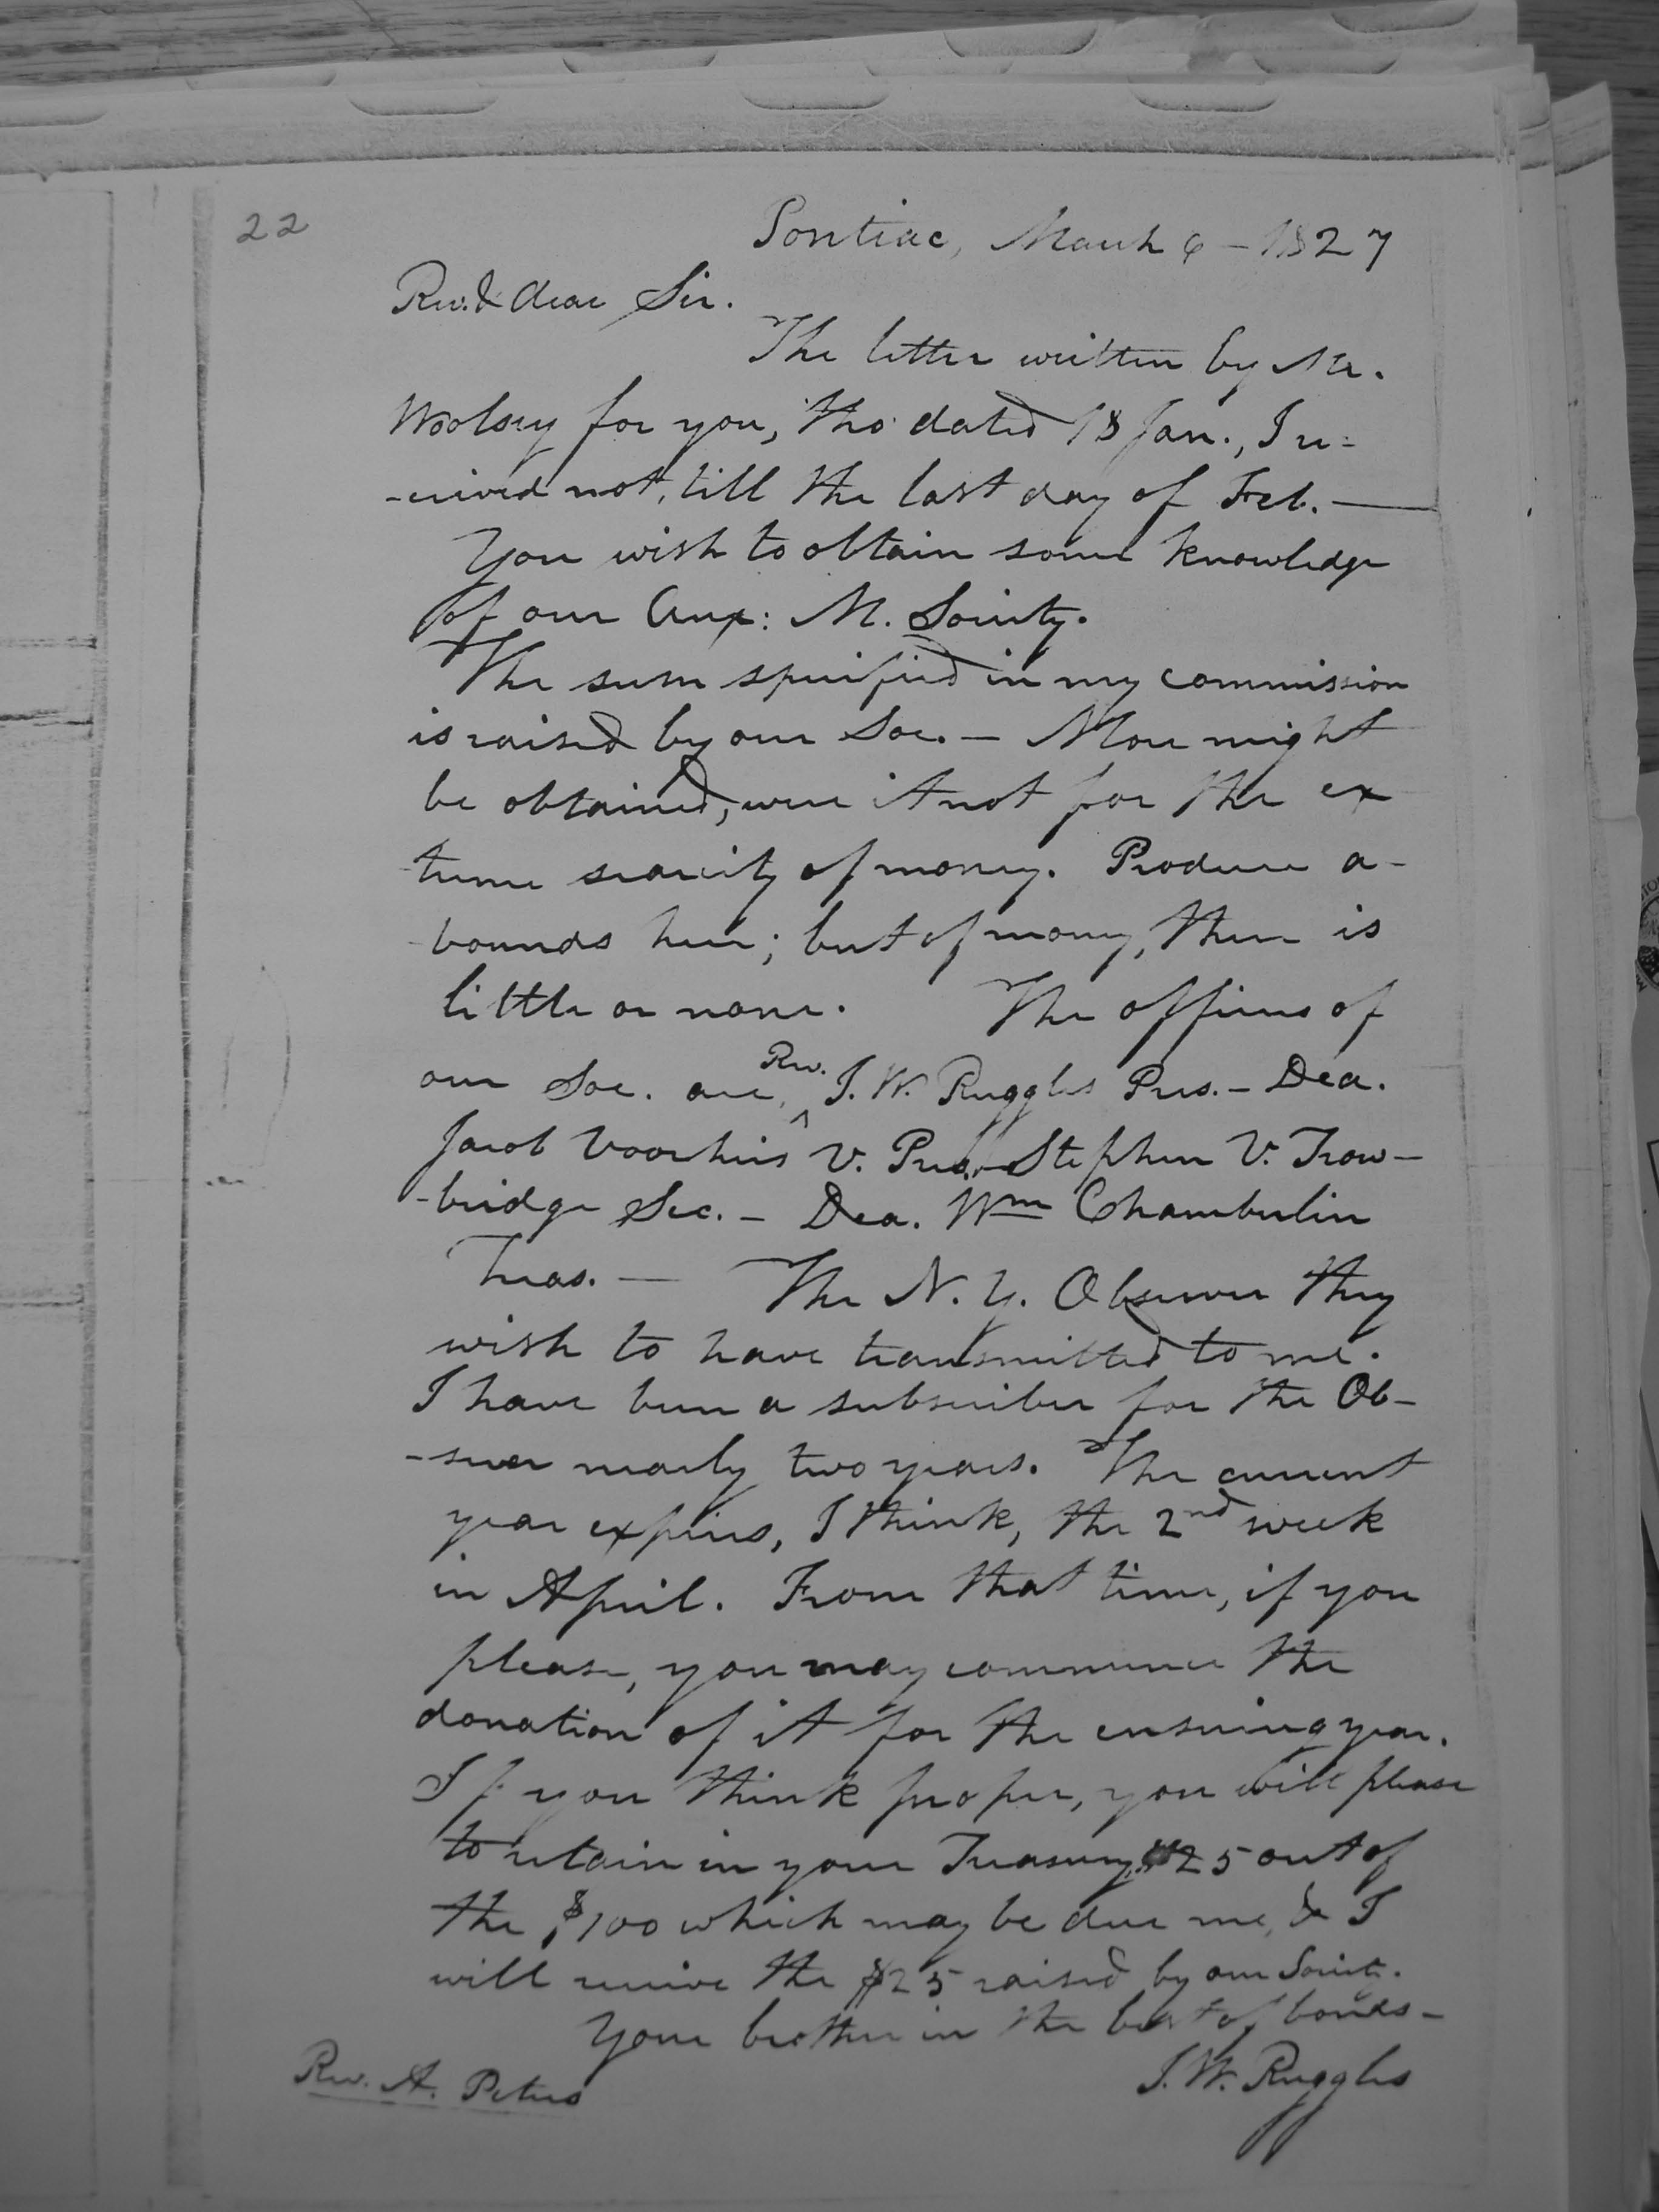 22
Pontiac, March 6 – 1827
Rev. & dear Sir.
The letter written by Mr.
Woolsey for you, tho' dated 18 Jan., I re-
-ceived not, till the last day of Feb. —
You wish to obtain some knowledge
of our Aux: M. Society.
The sum specified in my commission
is raised by our Soc. – More might
be obtained, were it not for the ex
treme scarcity of money. Produce a-
-bounds here; but of money, there is
little or none. The officers of
our Soc. are, Rev. I. W. Ruggles Pres. – Dea.
Jacob Voorheis V. Pres. – Stephen V. Trow-
-bridge Sec. – Dea. Wm Chamberlin
Treas. — The N. Y. Observer they
wish to have transmitted to me.
I have been a subscriber for the Ob-
-server nearly two years. The current
year expires, I think, the 2nd week
in April. From that time, if you
please, you may commence the
donation of it for the ensuing year.
If you think proper, you will please
to retain in your Treasury, $25 out of
the $100 which may be due me, & I
will receive the $25 raised by our Society.
Your brother in the best of bonds –
I. W. Ruggles
Rev. A. Peters